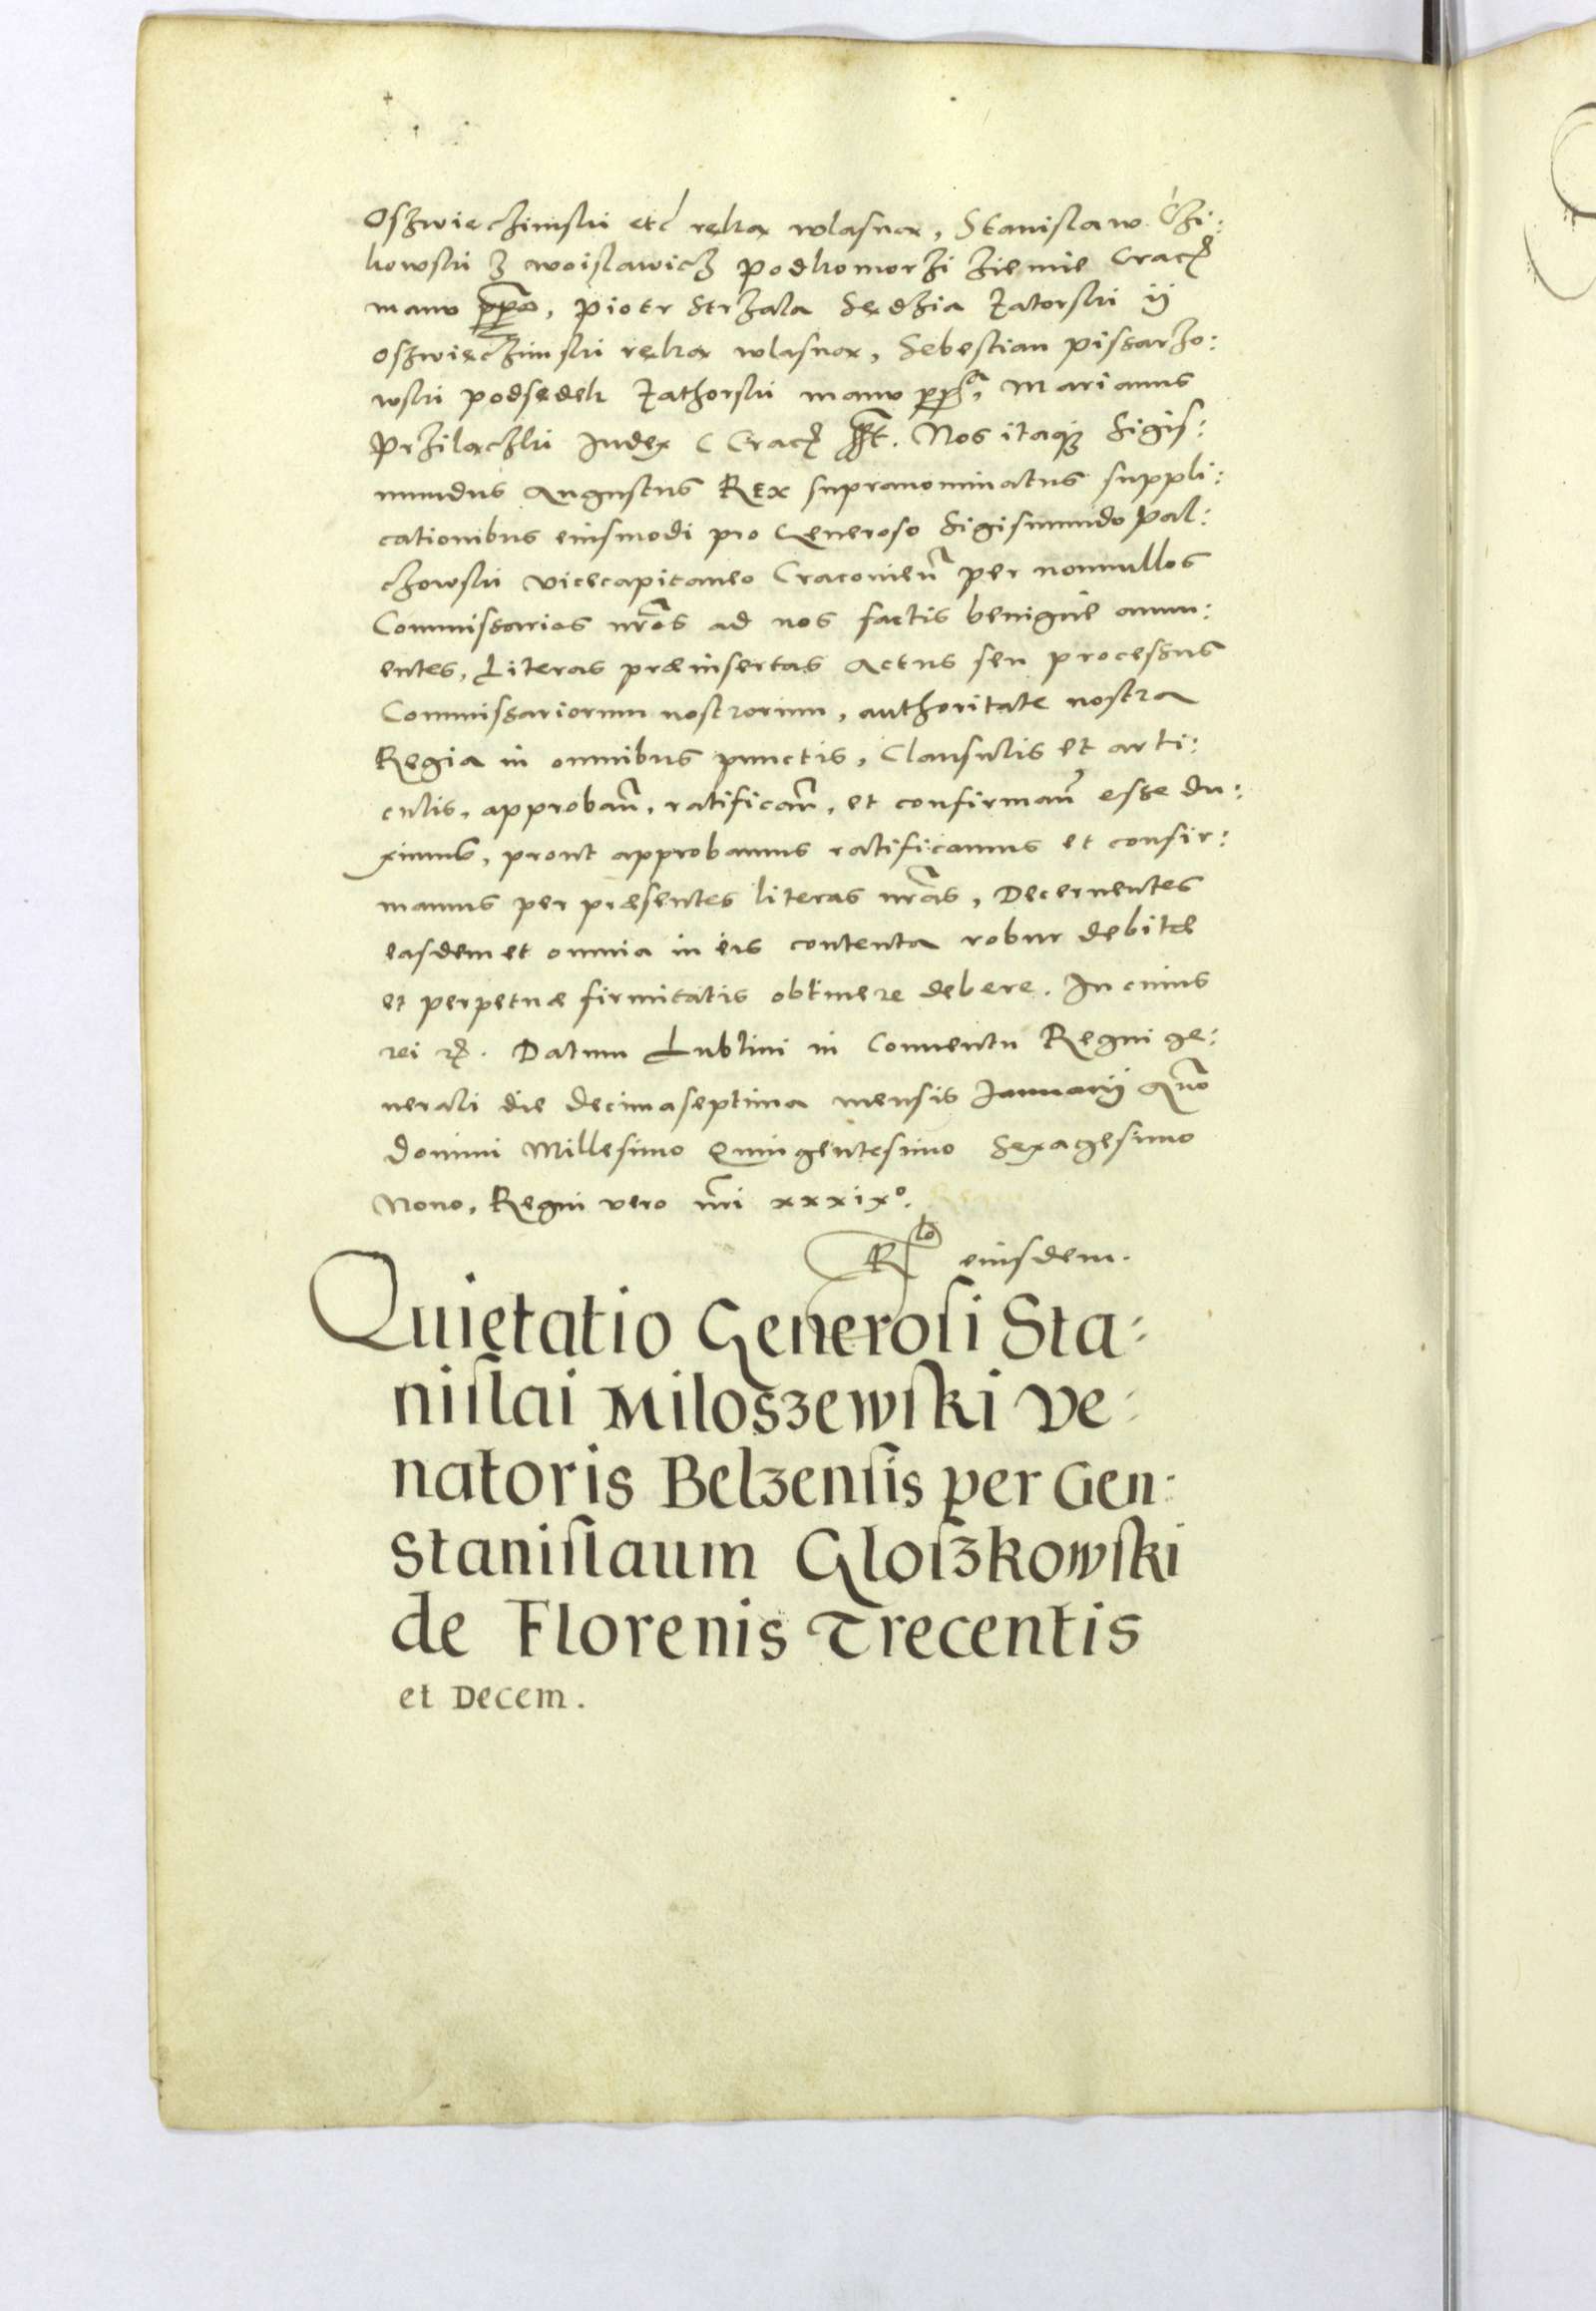 Oszwieczimski etc ręką wlasną, Stanislaw Czi:
kowski z woislawicz podkomorzi ziemie Crac
manu ppa, Piotr Strzala Sędzia zatorski ij
oszwieczimski ręką wlasną, Sebestian pissarzo:
wski podsędek zathorski manu ppa, Marianus
Przilączki Iudex C Crac sst. Nos itaq3 Sigis:
mundus Augustus Rex supranominatus suppli:
cationibus eiusmodi pro Generoso Sigismundo Pal:
czowski vicecapitaneo Cracovien per nonnullos
Commissarios nros ad nos factis benigne annu:
entes, Literas præinsertas Actus seu processus
Commissariorum nostrorum, authoritate nostra
Regia in omnibus punctis, Clausulis et arti:
culis, approban, ratifican, et confirman esse du:
ximus, prout approbamus ratificamus et confir:
mamus per præsentes literas nras, Decernentes
easdem et omnia in eis contenta robur debitæ
et perpetuæ firmitatis obtinere debere. In cuius
rei . Datum Lublini in Conventu Regni ge:
nerali die decimaseptima mensis Ianuarij Ano
domini Millesimo Quingentesimo Sexagesimo
Nono, Regni vero nri xxxixº.
Rlo eiusdem.
Quietatio Generosi Sta:
nislai Miloszewski Ve:
natoris Belzensis per Gen:
Stanislaum Gloszkowski
de Florenis Trecentis
et Decem.